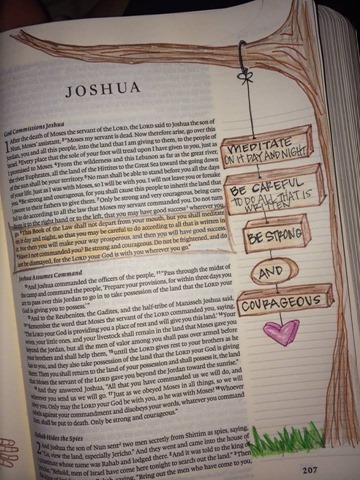 JOSHUA
God Commissions Joshua
1 After the death of Moses the servant of the LORD, the LORD said to Joshua the son of
Nun, Moses' assistant, 2 "Moses my servant is dead. Now therefore arise, go over
this Jordan, you and all this people, into the land that I am giving to them, to the people of
Israel. 3 Every place that the sole of your foot will tread upon I have given to you, just as
I promised to Moses. 4 From the wilderness and this Lebanon as far as the great river,
the river Euphrates, all the land of the Hittites to the Great Sea toward the going down
of the sun shall be your territory. 5 No man shall be able to stand before you all the days
of your life. Just as I was with Moses, so I will be with you. I will not leave you or forsake
you. 6 Be strong and courageous, for you shall cause this people to inherit the land that
I swore to their fathers to give them. 7 Only be strong and very courageous, being care-
ful to do according to all the law that Moses my servant commanded you. Do not turn
from it to the right hand or to the left, that you may have good success wherever you
go. 8 This Book of the Law shall not depart from your mouth, but you shall meditate
on it day and night, so that you may be careful to do according to all that is written in
it. For then you will make your way prosperous, and then you will have good success.
9 Have I not commanded you? Be strong and courageous. Do not be frightened, and do
not be dismayed, for the LORD your God is with you wherever you go."
Joshua Assumes Command
10 And Joshua commanded the officers of the people, 11 "Pass through the midst of
the camp and command the people, 'Prepare your provisions, for within three days you
are to pass over this Jordan to go in to take possession of the land that the LORD your
God is giving you to possess.'"
12 And to the Reubenites, the Gadites, and the half-tribe of Manasseh Joshua said,
13 "Remember the word that Moses the servant of the LORD commanded you, saying,
'The LORD your God is providing you a place of rest and will give you this land.' 14 Your
wives, your little ones, and your livestock shall remain in the land that Moses gave you
beyond the Jordan, but all the men of valor among you shall pass over armed before
your brothers and shall help them, 15 until the LORD gives rest to your brothers as he
has to you, and they also take possession of the land that the LORD your God is giving
them. Then you shall return to the land of your possession and shall possess it, the land
that Moses the servant of the LORD gave you beyond the Jordan toward the sunrise."
16 And they answered Joshua, "All that you have commanded us we will do, and
wherever you send us we will go. 17 Just as we obeyed Moses in all things, so we will
obey you. Only may the LORD your God be with you, as he was with Moses! 18 Whoever
rebels against your commandment and disobeys your words, whatever you command
him, shall be put to death. Only be strong and courageous."
Rahab Hides the Spies
2 And Joshua the son of Nun sent two men secretly from Shittim as spies, saying,
"Go, view the land, especially Jericho." And they went and came into the house of
a prostitute whose name was Rahab and lodged there. 2 And it was told to the king of
Jericho, "Behold, men of Israel have come here tonight to search out the land." 3 Then
the king of Jericho sent to Rahab, saying, "Bring out the men who have come to you,
MEDITATE
ON IT DAY AND NIGHT
BE CAREFUL
TO DO ALL THAT IS
BE STRONG
AND
COURAGEOUS
207